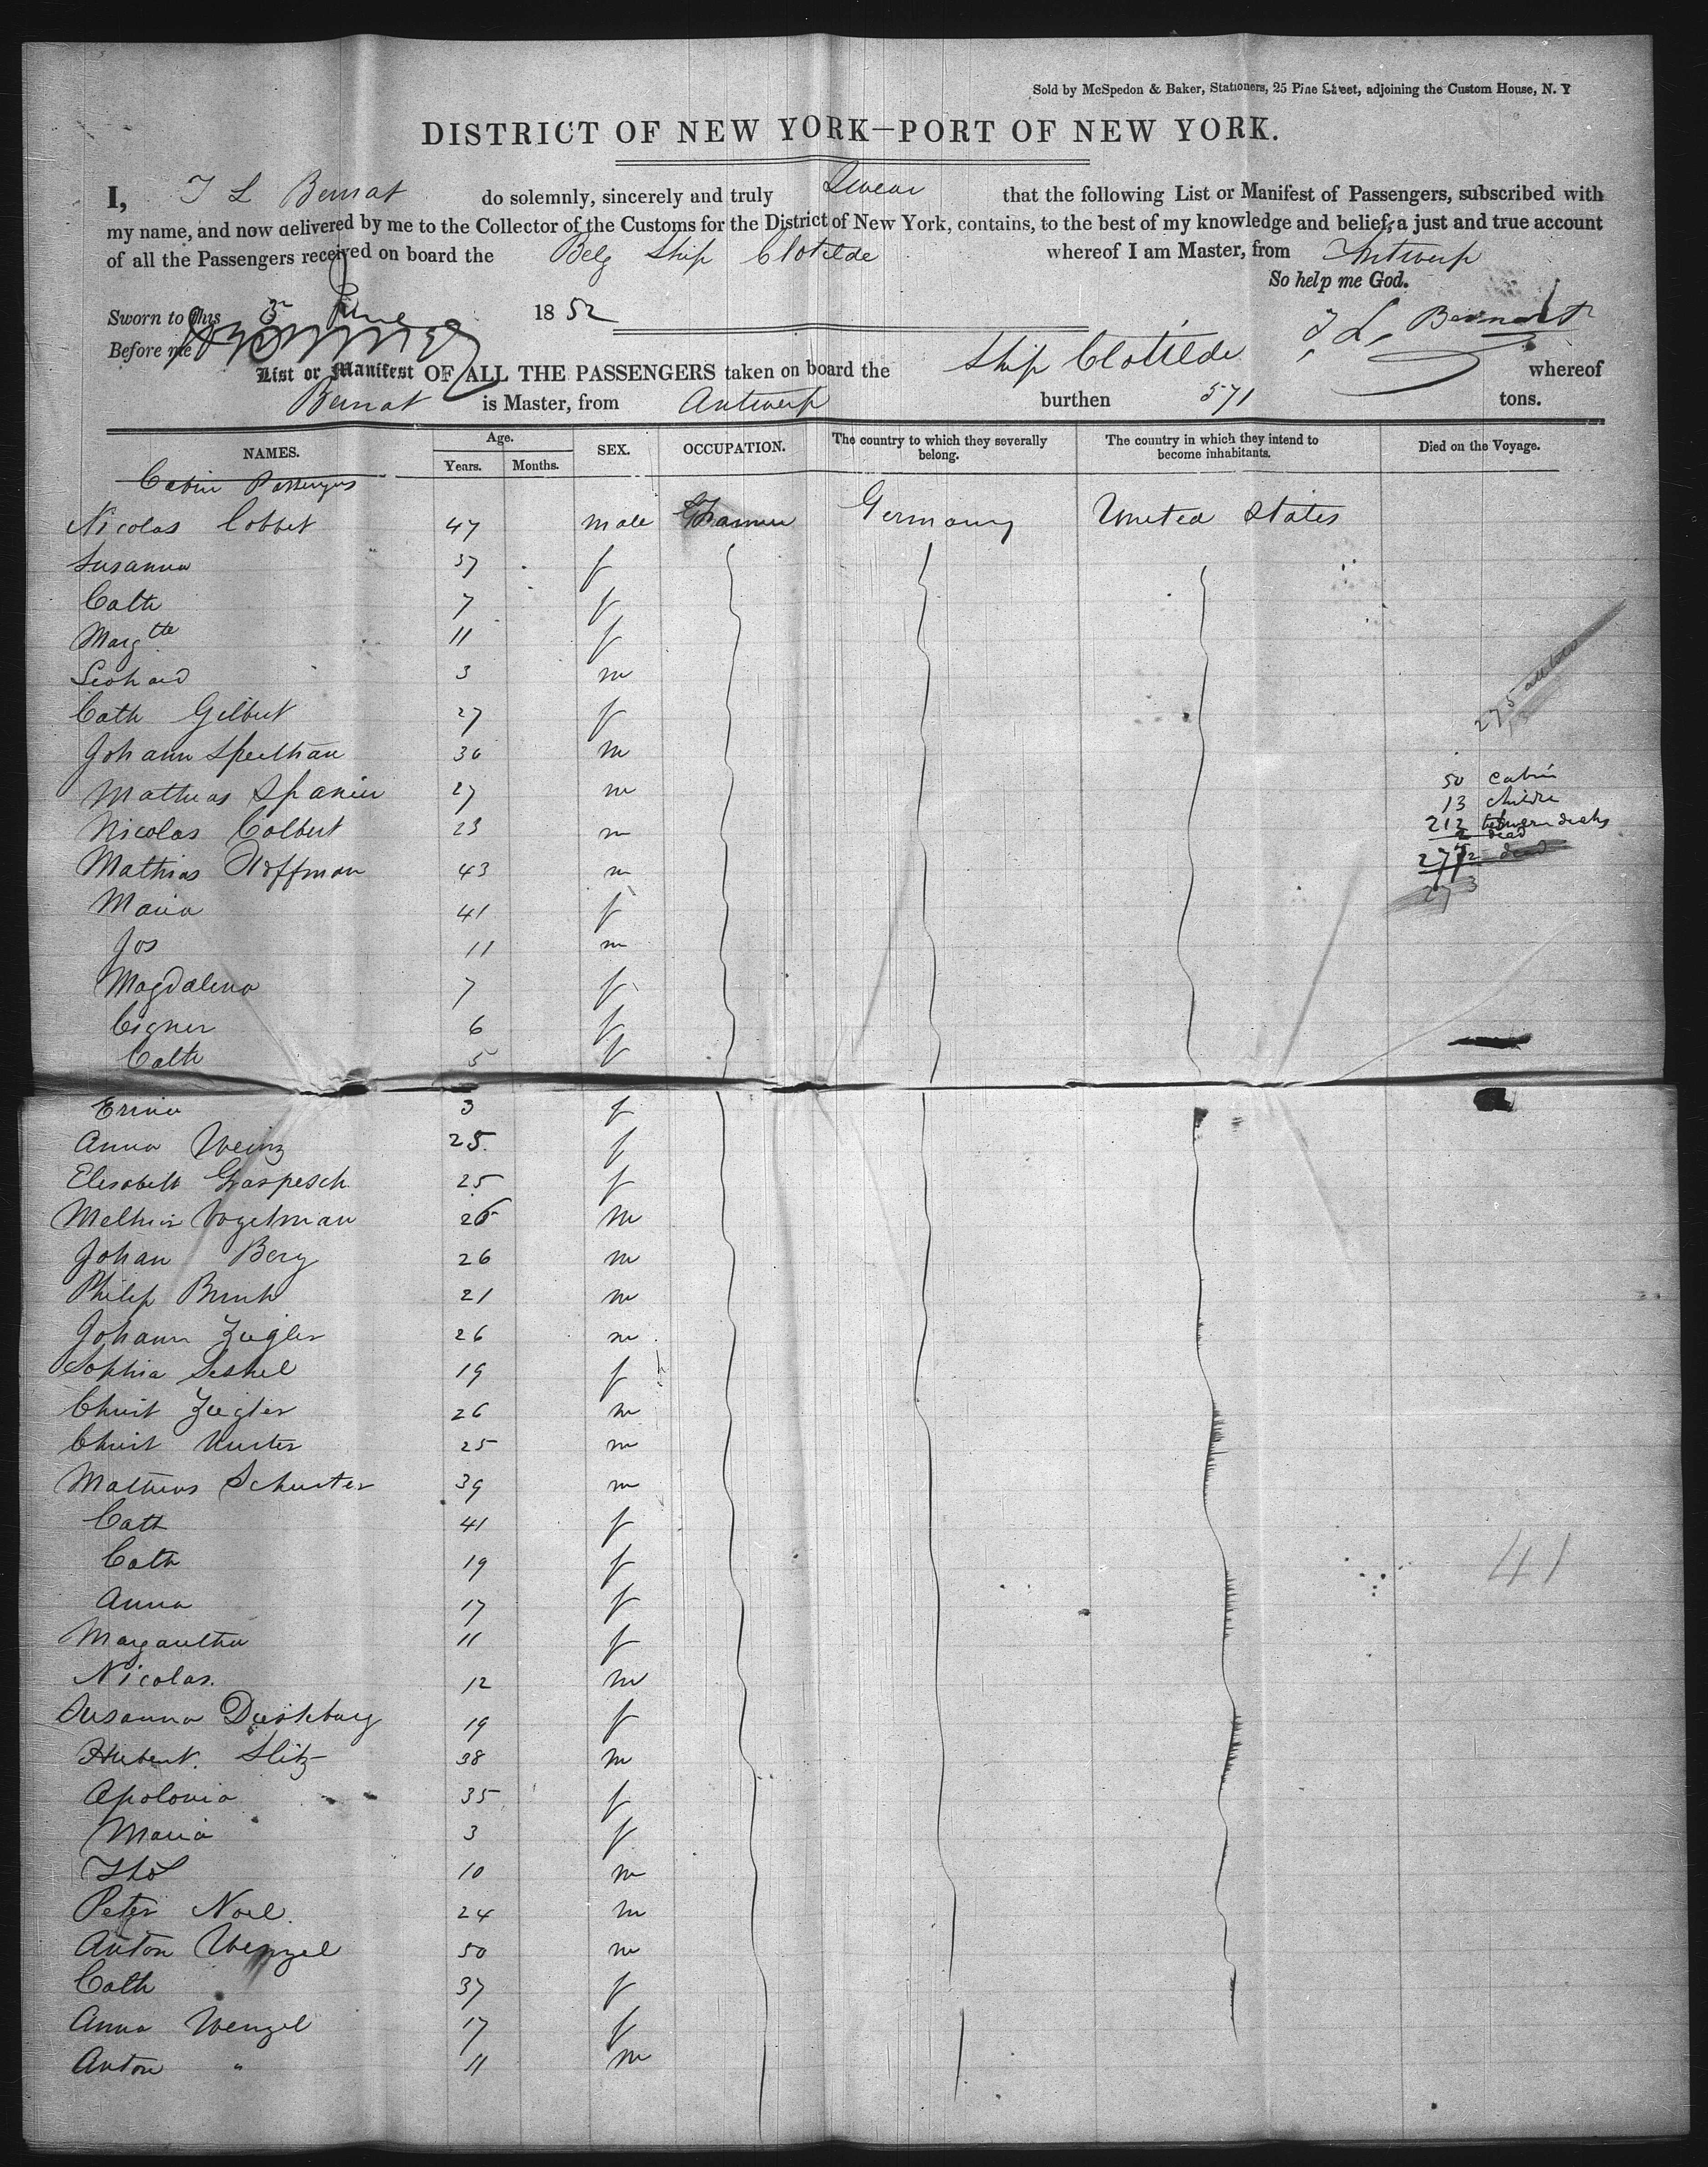 Sold by McSpedon & Baker, Stationers, 25 Pine Street, adjoining the Custom House, N. Y
DISTRICT OF NEW YORK—PORT OF NEW YORK.
I, T L Bernat do solemnly, sincerely and truly Swear that the following List or Manifest of Passengers, subscribed with
my name, and now delivered by me to the Collector of the Customs for the District of New York, contains, to the best of my knowledge and belief, a just and true account
of all the Passengers received on board the Belg Ship Clotilde whereof I am Master, from Antwerp
So help me God.
Sworn to this 3 June 1852
Before me
List or Manifest OF ALL THE PASSENGERS taken on board the Ship Clotilde whereof
Bernat is Master, from Antwerp burthen 571 tons.
NAMES. Age. Years. Months. SEX. OCCUPATION. The country to which they severally belong. The country in which they intend to become inhabitants. Died on the Voyage.
Cabin Passengers
Nicolas Cobbet 47 male Germany United States
Susanna 37 f
Cath 7 f
Margtte 11 f
3 m
Cath Gilbert 27 f
275
Johann 30 m
50 cabin
Mathias Spanier 27 m
13
Nicolas Colbert 23 m
212 between decks
2 dead
Mathias Hoffman 43 m
Maria 41 f
273
Jos 11 m
Magdalena 7 f
6 f
Cath 5 f
3 f
Anna Weinz 25 f
Elisabeth Graspesch 25 f
Vogelman 26 m
Johan Berg 26 m
Philip 21 m
Johann Ziegler 26 m
Sophia 19 f
Christ Ziegler 26 m
Christ 25 m
Mathias Schuster 39 m
Cath 41 f
Cath 19 f
41
Anna 17 f
Margaretha 11 f
Nicolas. 12 m
Susanna 19 f
Hubert Slitz 38 m
Apolonia 35 f
Maria 3 f
10 m
Peter Noel 24 m
Anton Wenzel 50 m
Cath 37 f
Anna Wenzel 17 f
Anton " 11 m